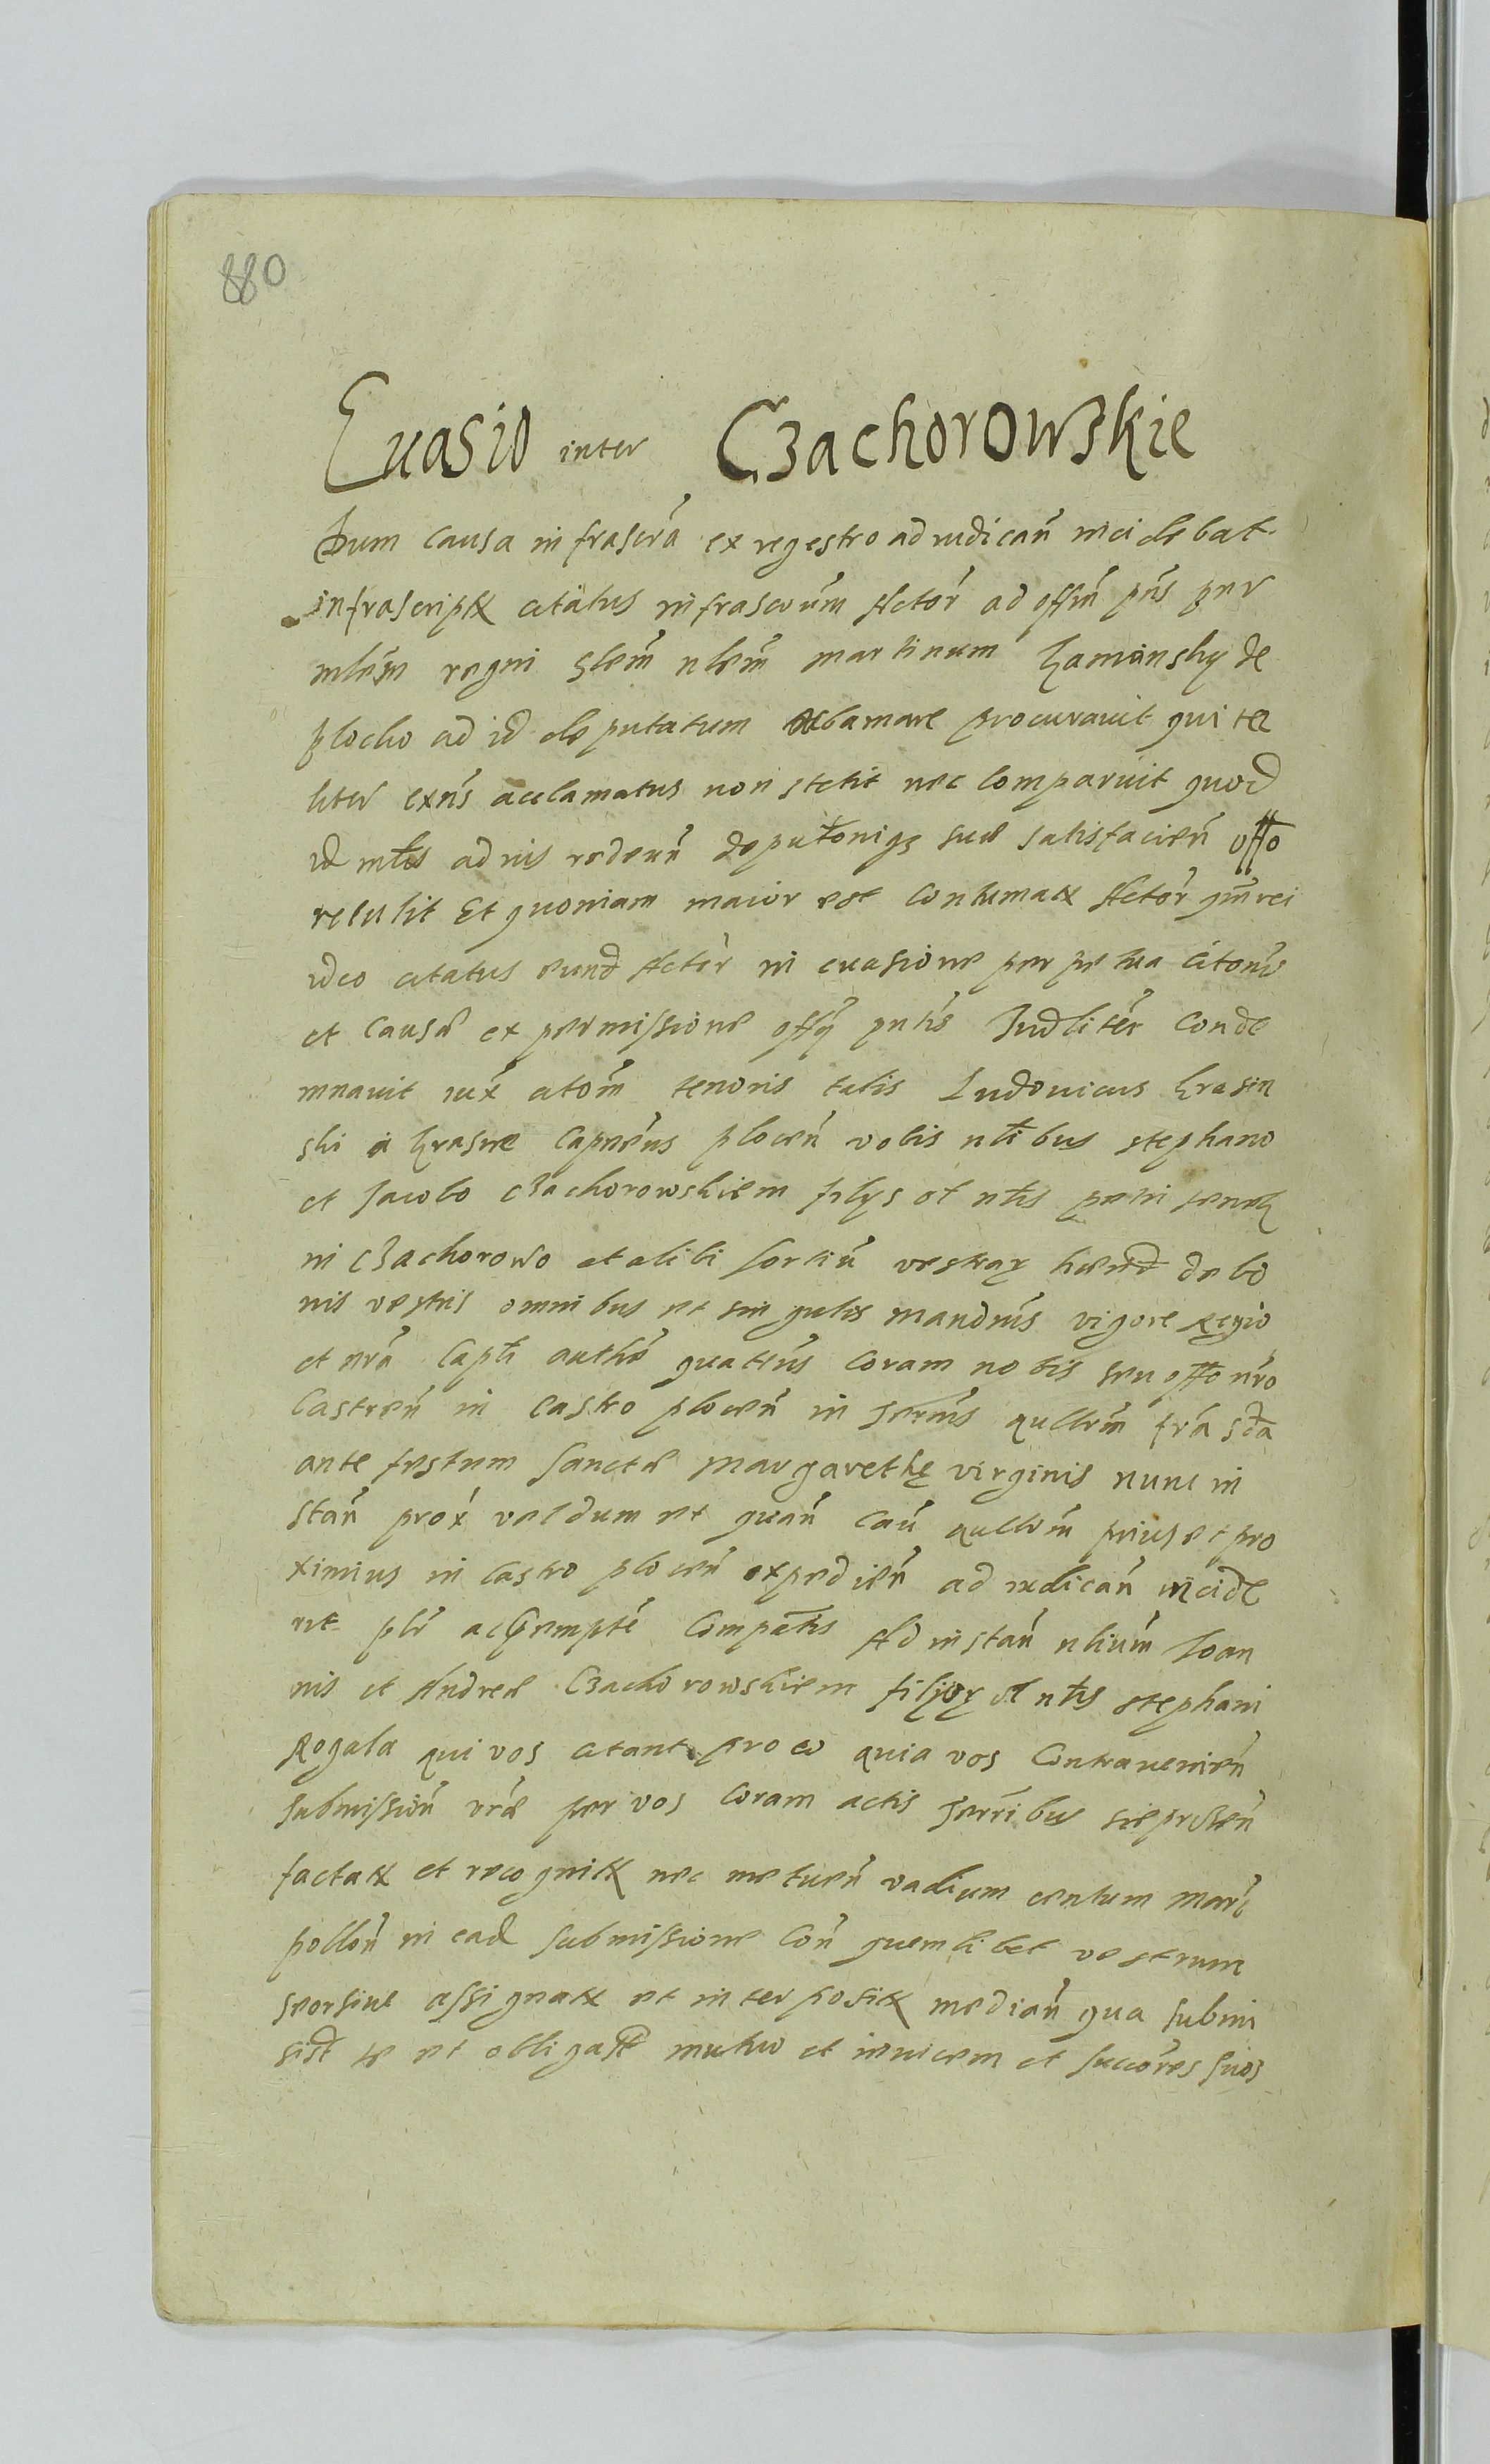 880
Euasio inter Czachorowskie
Dum causa infrascra ex regestro ad iudican incidebat
infrascriptus citatus infrascrum Actor ad offm pns per
mlem regni glem nlem Martinum Kaminsky de
plocko ad id deputatum acclamare procurauit qui ta
liter exns acclamatus non stetit nec comparuit quod
id mles ad nis redeun deputoniqz sue satisfacien offo
retulit Et quoniam maior est contumax Actor qm rei
ideo citatus eund Actor in euasione perpetua citonis
et cause ex permissione offy pntis Judliter conde
mnauit iux citom tenoris talis Ludouicus Krasin
ski a Krasne Capneus plocen vobis nlibus stephano
et Jacobo Czachorowskiem filys ol nlis petri
in Czachorowo et alibi sortiu vestrar de bo
nis vestris omnibus et singulis mandms vigore regio
et nra Capli authe quatens coram nobis seu offo nro
Castren in castro plocen in termis qullrm fra sda
ante festum sancte Margarethę virginis nunc in
stan prox veldum et quan cau qullrm prius et pro
ximius in castro plocen expedien ad iudican incide
rit plr ac pempte compatis Ad instan nlium Joan
nis et Andree Czachorowskiem filyor ol nlis stephani
Rogala qui vos citant pro eo quia vos contrauenien
submission vre per vos coram actis terribus sieprcen
factax et recognitx nec metuen vadium centum marc
pollon in ead submissione con quemlibet vestrum
seorsiue assignatx et interpositx median qua submi
sist se et obligast mutuo et inuicem et succores suos